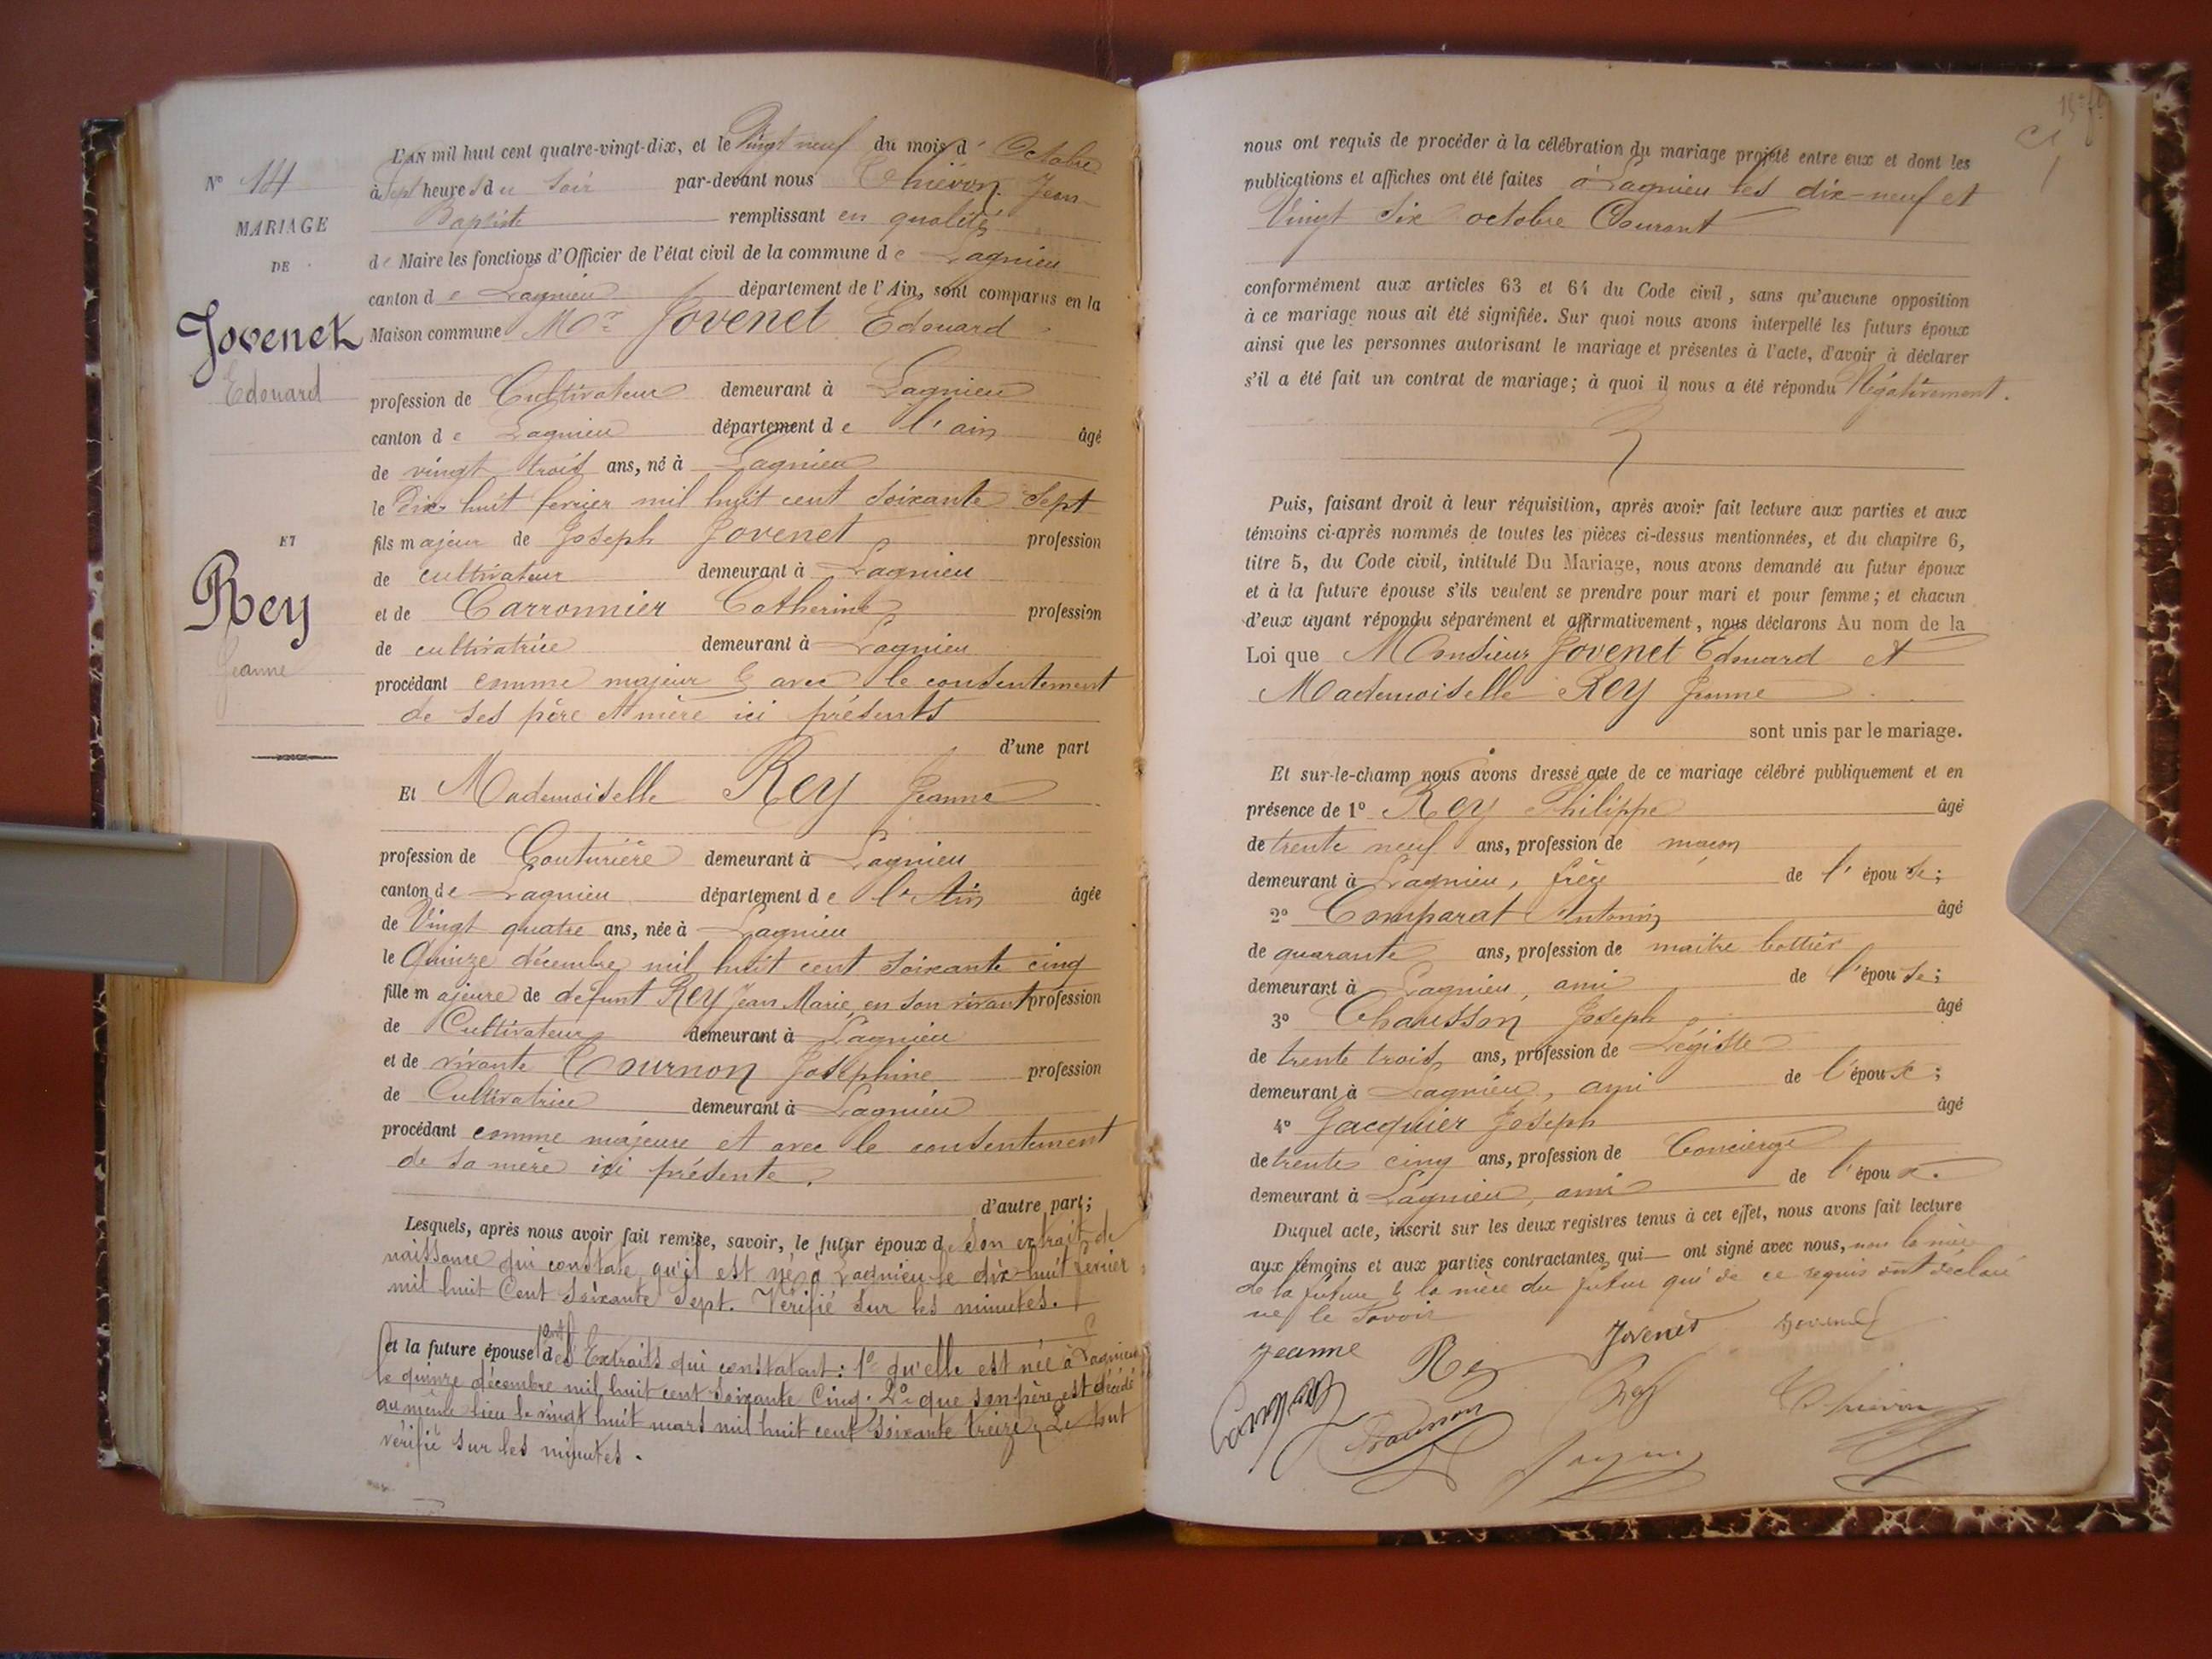 N° 14
MARIAGE
DE
Jovenet
Edouard
ET
Rey
Jeanne
L'AN mil huit cent quatre-vingt-dix, et le Vingt neuf du mois d' Octobre
à Sept heures du Soir par-devant nous Thiévon Jean
Baptiste remplissant en qualité
de Maire les fonctions d'Officier de l'état civil de la commune de Lagnieu
canton de Lagnieu département de l'Ain, sont comparus en la
Maison commune Mr Jovenet Edouard
profession de Cultivateur demeurant à Lagnieu
canton de Lagnieu département de l'ain âgé
de vingt trois ans, né à Lagnieu
le Dix huit fevrier mil huit cent soixante Sept
fils majeur de Joseph Jovenet profession
de cultivateur demeurant à Lagnieu
et de Carronnier Catherine profession
de cultivatrice demeurant à Lagnieu
procédant comme majeur & avec le consentement
de ses père et mère ici présents
d'une part
Et Mademoiselle Rey Jeanne
profession de Couturière demeurant à Lagnieu
canton de Lagnieu département de l'Ain âgée
de Vingt quatre ans, née à Lagnieu
le Quinze décembre mil huit cent soixante cinq
fille majeure de défunt Rey Jean Marie en son vivant profession
de Cultivateur demeurant à Lagnieu
et de vivante Tournon Joséphine profession
de Cultivatrice demeurant à Lagnieu
procédant comme majeure et avec le consentement
de sa mère ici présente.
d'autre part;
Lesquels, après nous avoir fait remise, savoir, le futur époux de Son extrait de
naissance qui constate qu'il est né à Lagnieu le dix-huit fevrier
mil huit Cent Soixante Sept. Vérifié sur les minutes.
et la future épouse des Extraits qui constatent: 1° qu'elle est née à Lagnieu
le quinze décembre mil huit cent soixante Cinq; 2° que son père est décédé
au même lieu le vingt huit mars mil huit cent soixante treize, Le tout
vérifié sur les minutes.
nous ont requis de procéder à la célébration du mariage projeté entre eux et dont les
publications et affiches ont été faites à Lagnieu les dix-neuf et
Vingt Six octobre Courant
conformément aux articles 63 et 64 du Code civil, sans qu'aucune opposition
à ce mariage nous ait été signifiée. Sur quoi nous avons interpellé les futurs époux
ainsi que les personnes autorisant le mariage et présentes à l'acte, d'avoir à déclarer
s'il a été fait un contrat de mariage; à quoi il nous a été répondu Négativement.
Puis, faisant droit à leur réquisition, après avoir fait lecture aux parties et aux
témoins ci-après nommés de toutes les pièces ci-dessus mentionnées, et du chapitre 6,
titre 5, du Code civil, intitulé Du Mariage, nous avons demandé au futur époux
et à la future épouse s'ils veulent se prendre pour mari et pour femme; et chacun
d'eux ayant répondu séparément et affirmativement, nous déclarons Au nom de la
Loi que Monsieur Jovenet Edouard et
Mademoiselle Rey Jeanne
sont unis par le mariage.
Et sur-le-champ nous avons dressé acte de ce mariage célébré publiquement et en
présence de 1° Rey Philippe âgé
de trente neuf ans, profession de maçon
demeurant à Lagnieu, frère de l'épouse;
2° Comparat Antonin âgé
de quarante ans, profession de maitre bottier
demeurant à Lagnieu, ami de l'épouse;
3° Chausson Joseph âgé
de trente trois ans, profession de Légiste
demeurant à Lagnieu, ami de l'époux;
4° Jacquier Joseph âgé
de trente cinq ans, profession de Concierge
demeurant à Lagnieu, ami de l'époux.
Duquel acte, inscrit sur les deux registres tenus à cet effet, nous avons fait lecture
aux témoins et aux parties contractantes qui ont signé avec nous, non la mère
de la future & la mère du futur qui de ce requis ont déclaré
ne le Savoir
Jeanne Rey Jovenet
Rey Thiévon
Chausson